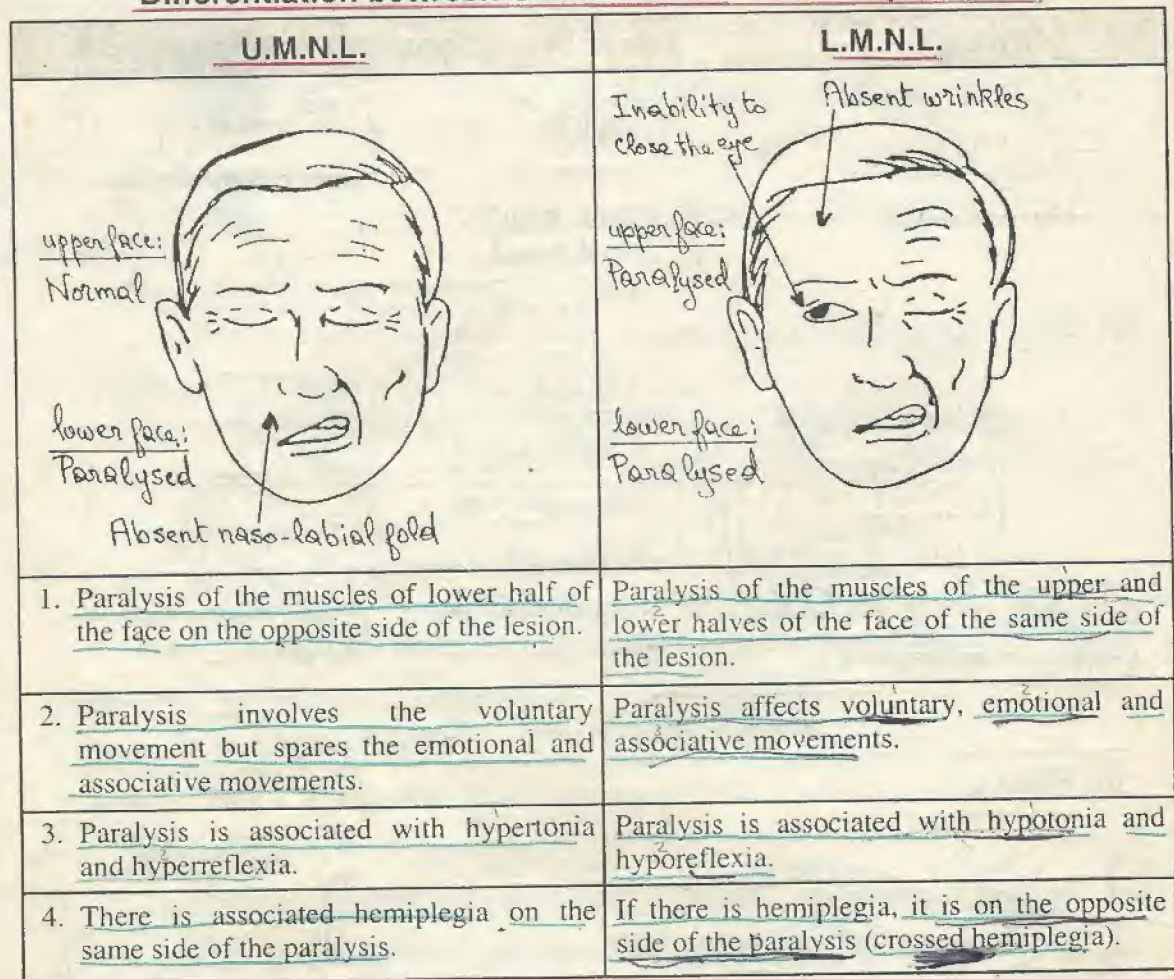 Differentiation between
U.M.N.L.
L.M.N.L.
upper face:
Normal
lower face:
Paralysed
Absent naso-labial fold
Inability to
close the eye
Absent wrinkles
upper face:
Paralysed
lower face:
Paralysed
1. Paralysis of the muscles of lower half of
the face on the opposite side of the lesion.
Paralysis of the muscles of the upper and
lower halves of the face of the same side of
the lesion.
2. Paralysis involves the voluntary
movement but spares the emotional and
associative movements.
Paralysis affects voluntary, emotional and
associative movements.
3. Paralysis is associated with hypertonia
and hyperreflexia.
Paralysis is associated with hypotonia and
hyporeflexia.
4. There is associated hemiplegia on the
same side of the paralysis.
If there is hemiplegia, it is on the opposite
side of the paralysis (crossed hemiplegia).